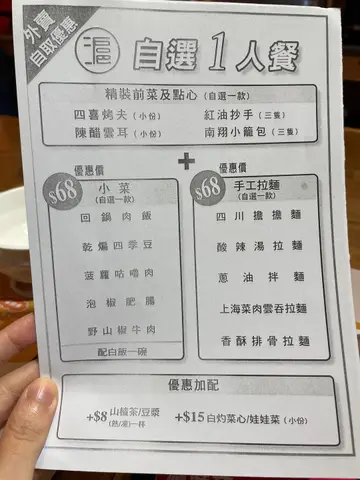 外賣
自取優惠
滬
自選1人餐
精裝前菜及點心 (自選一款)
四喜烤夫 (小份) 紅油抄手 (三隻)
陳醋雲耳 (小份) 南翔小籠包 (三隻)
+
優惠價
$68
小菜
(自選一款)
回鍋肉飯
乾煸四季豆
菠蘿咕嚕肉
泡椒肥腸
野山椒牛肉
配白飯一碗
優惠價
$68
手工拉麵
(自選一款)
四川擔擔麵
酸辣湯拉麵
蔥油拌麵
上海菜肉雲吞拉麵
香酥排骨拉麵
優惠加配
+$8 山楂茶/豆漿
(熱/凍)一杯
+$15 白灼菜心/娃娃菜 (小份)